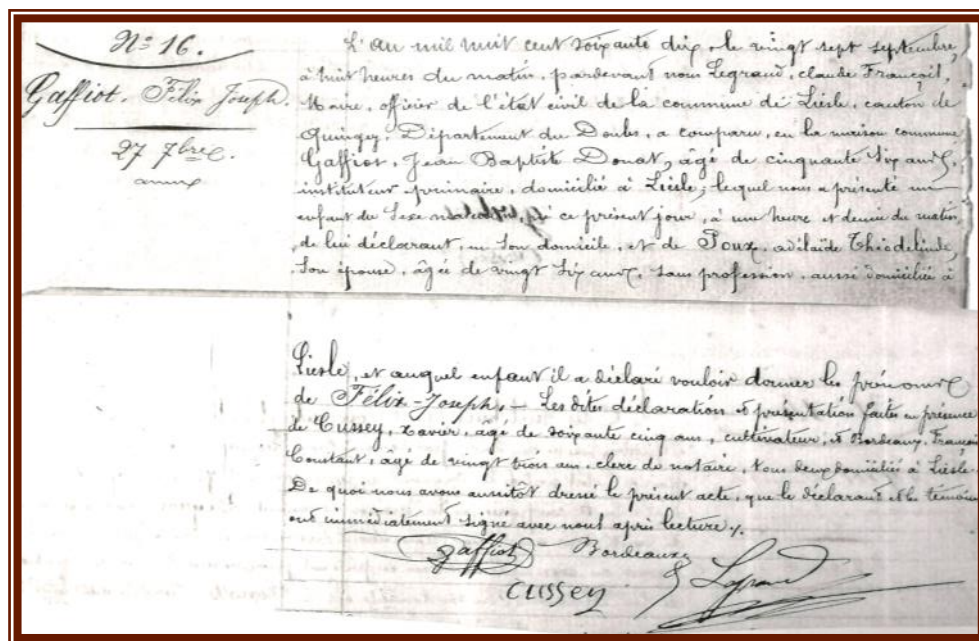 N° 16.
Gaffiot. Félix Joseph.
27 7bre.
L'an mil huit cent soixante dix, le vingt sept septembre,
à huit heures du matin, pardevant nous Legrand, claude François,
Maire, officier de l'état civil de la commune de Liesle, canton de
Quingey, Département du Doubs, a comparu, en la maison commune
Gaffiot, Jean Baptiste Donat, âgé de cinquante six ans,
instituteur primaire, domicilié à Liesle; lequel nous a présenté un
enfant du sexe masculin, né ce présent jour, à une heure et demie du matin,
de lui déclarant, en son domicile, et de Poux, adélaïde Théodelinde,
son épouse, âgée de vingt six ans, sans profession, aussi domiciliée à
Liesle, et auquel enfant il a déclaré vouloir donner les prénoms
de Félix-Joseph. — Les dites déclaration et présentation faites en présence
de Cussey, Xavier, âgé de soixante cinq ans, cultivateur, et Bordeaux, François
Constant, âgé de vingt trois ans, clerc de notaire, tous deux domiciliés à Liesle.
De quoi nous avons aussitôt dressé le présent acte, que le déclarant et les témoins
ont immédiatement signé avec nous après lecture ./.
Gaffiot Bordeaux
CUSSEY Legrand